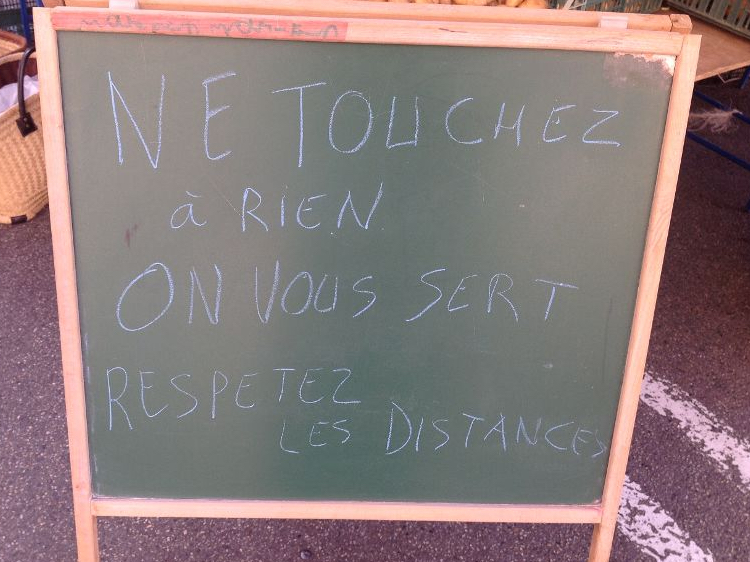 NE TOUCHEZ
à RIEN
ON VOUS SERT
RESPETEZ
LES DISTANCES